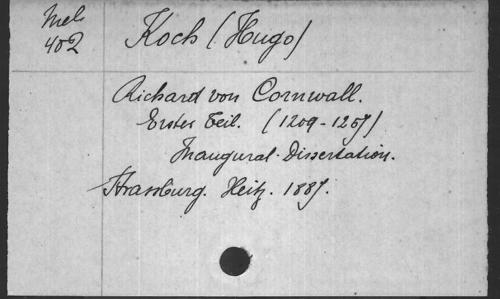 Mel
402
Koch (Hugo)
Richard von Cornwall.
Erster Teil. (1209-1257)
Inaugural-Dissertation.
Strassburg. Heitz. 1887.